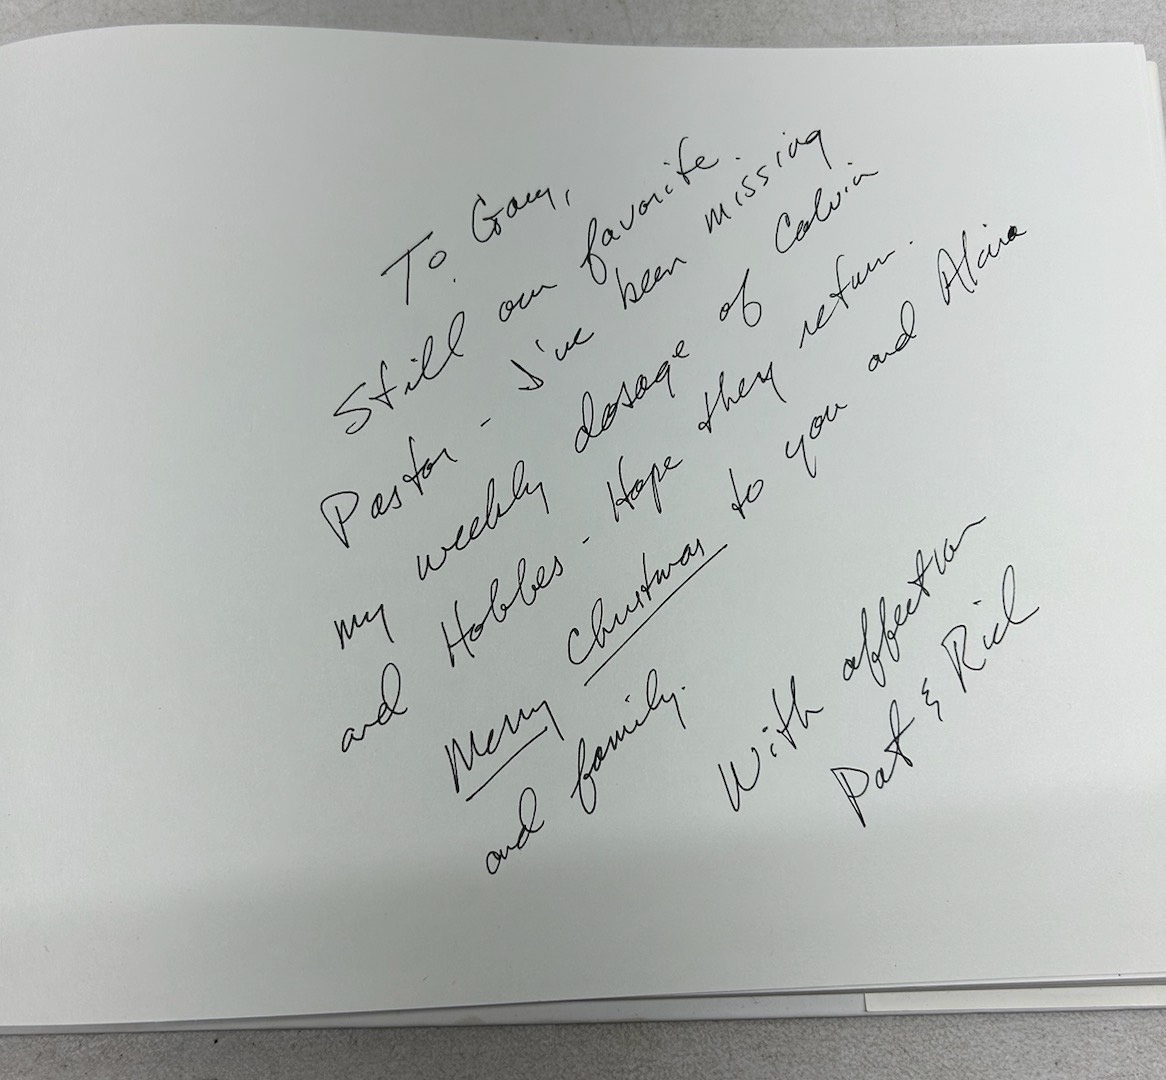 To Gary,
Still our favorite
Pastor - I've been missing
my weekly dosage of Calvin
and Hobbes - Hope they return.
Merry Christmas to you and Alina
and family.
With affection
Pat & Rich